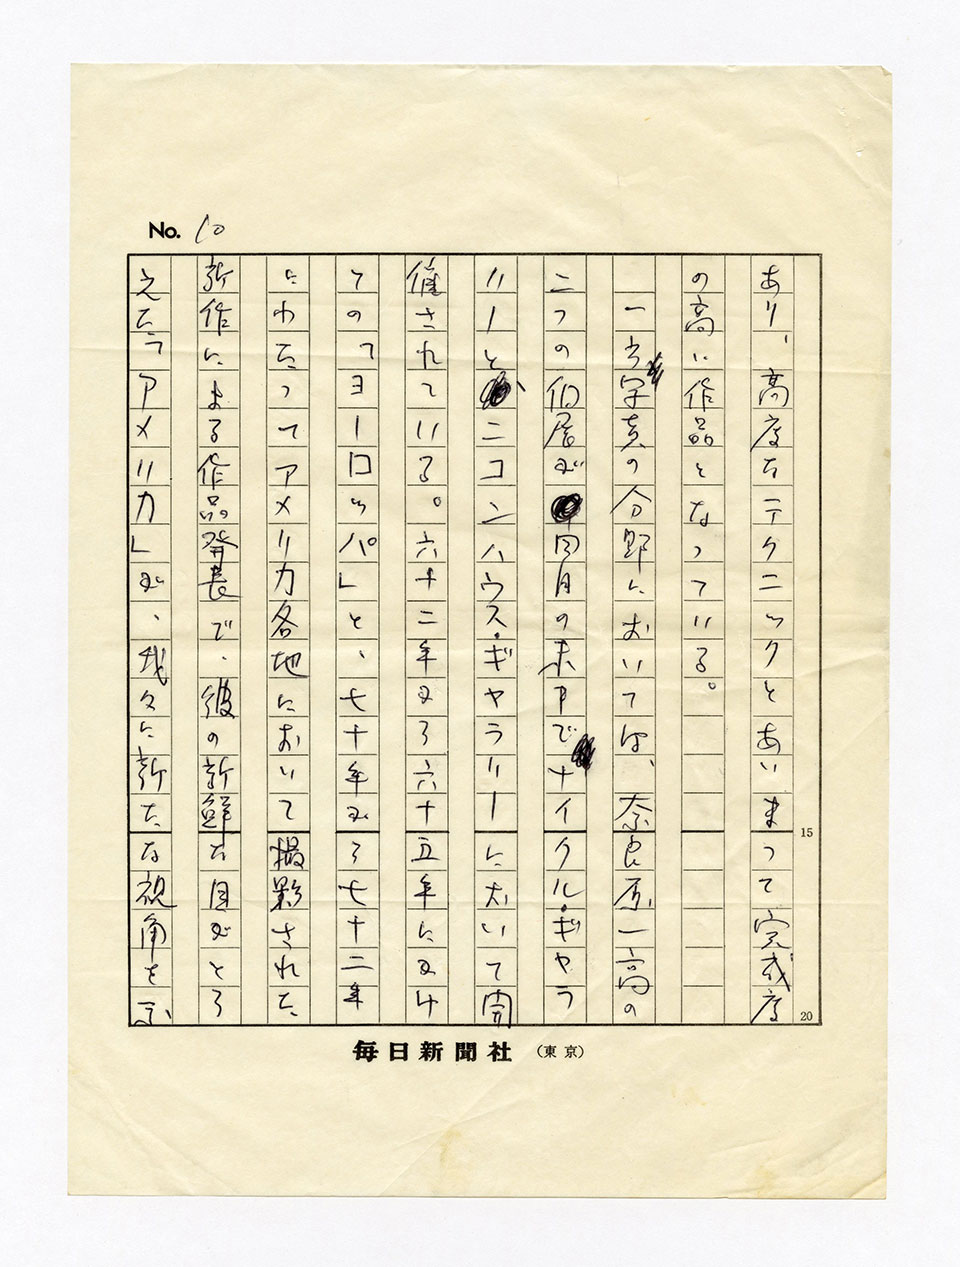 No. 10
あり、高度なテクニックとあいまって完成度
の高い作品となっている。
一方写真の分野においては、奈良原一高の
二つの個展が同月の末までナイクル・ギャラ
リーとニコンハウス・ギャラリーにおいて開
催されている。六十二年から六十五年にかけ
ての「ヨーロッパ」と、七十年から七十二年
にわたってアメリカ各地において撮影された
新作による作品発表で、彼の新鮮な目がとら
えた「アメリカ」が、我々に新たな視角を示
15
20
毎日新聞社 (東京)